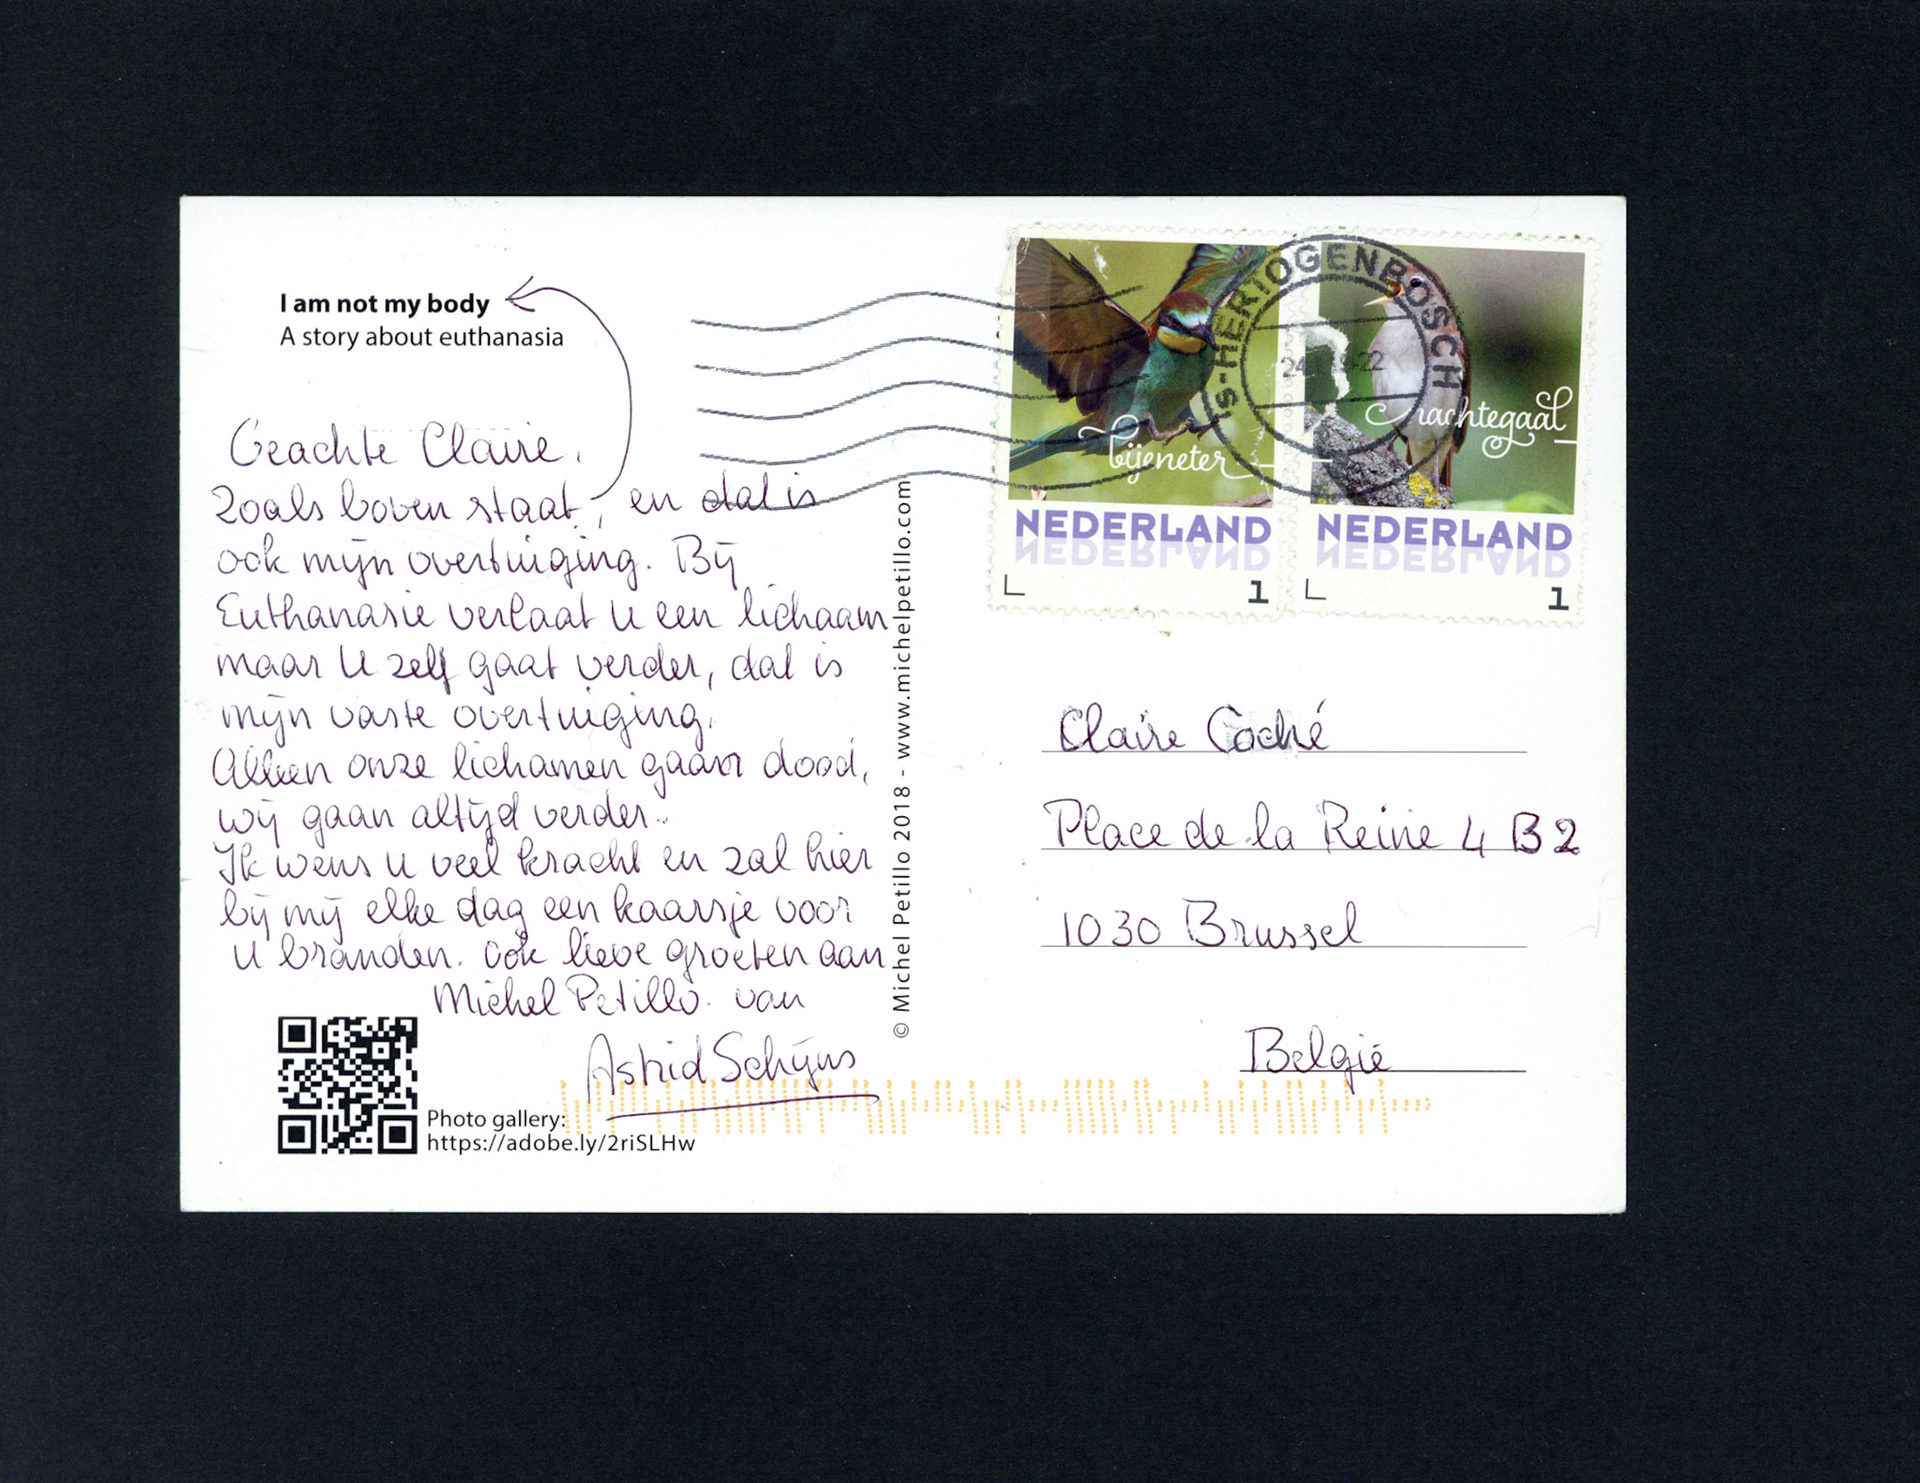 I am not my body
A story about euthanasia
Geachte Claire,
zoals boven staat, en dat is
ook mijn overtuiging. Bij
Euthanasie verlaat u een lichaam
maar U zelf gaat verder, dat is
mijn vaste overtuiging.
Alleen onze lichamen gaan dood,
wij gaan altijd verder..
Ik wens u veel kracht en zal hier
bij mij elke dag een kaarsje voor
u branden. Ook lieve groeten aan
Michel Petillo. van
Astrid Schijns
Photo gallery:
https://adobe.ly/2riSLHw
© Michel Petillo 2018 - www.michelpetillo.com
's-HERTOGENBOSCH
bijeneter
NEDERLAND
1
nachtegaal
NEDERLAND
1
Claire Coché
Place de la Reine 4 B2
1030 Brussel
België